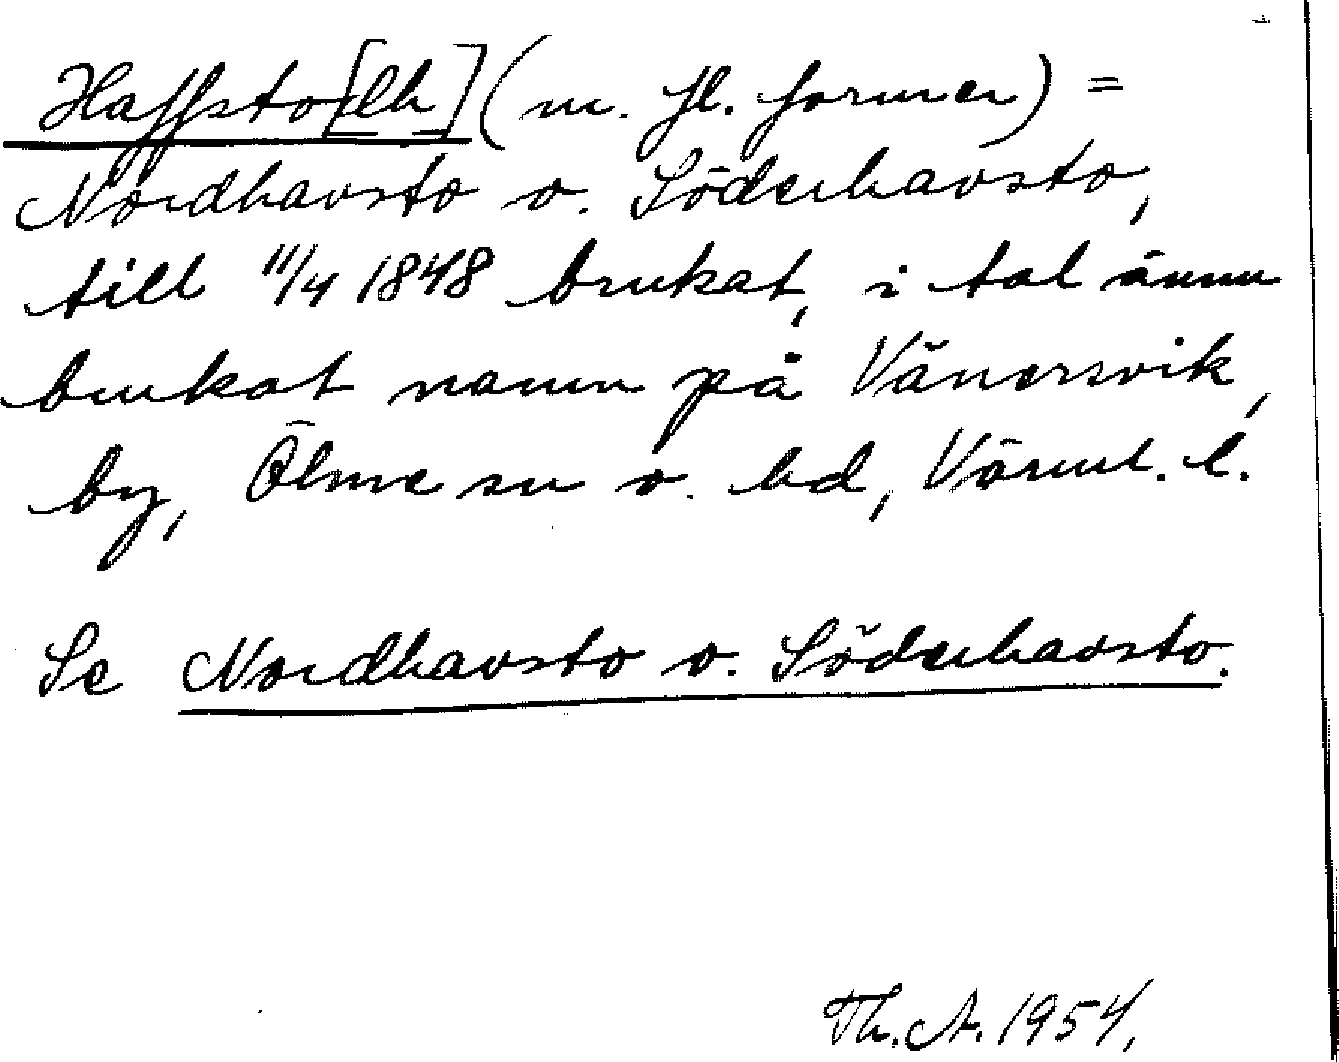 Haffsto[lh] (m. fl. former) =
Nordhavsto o. Söderhavsto,
till 11/4 1848 brukat, i tal ännu
brukat namn på Vänersvik,
by, Ölme sn o. hd, Värml. l.
Se Nordhavsto o. Söderhavsto.
Th. A. 1954.